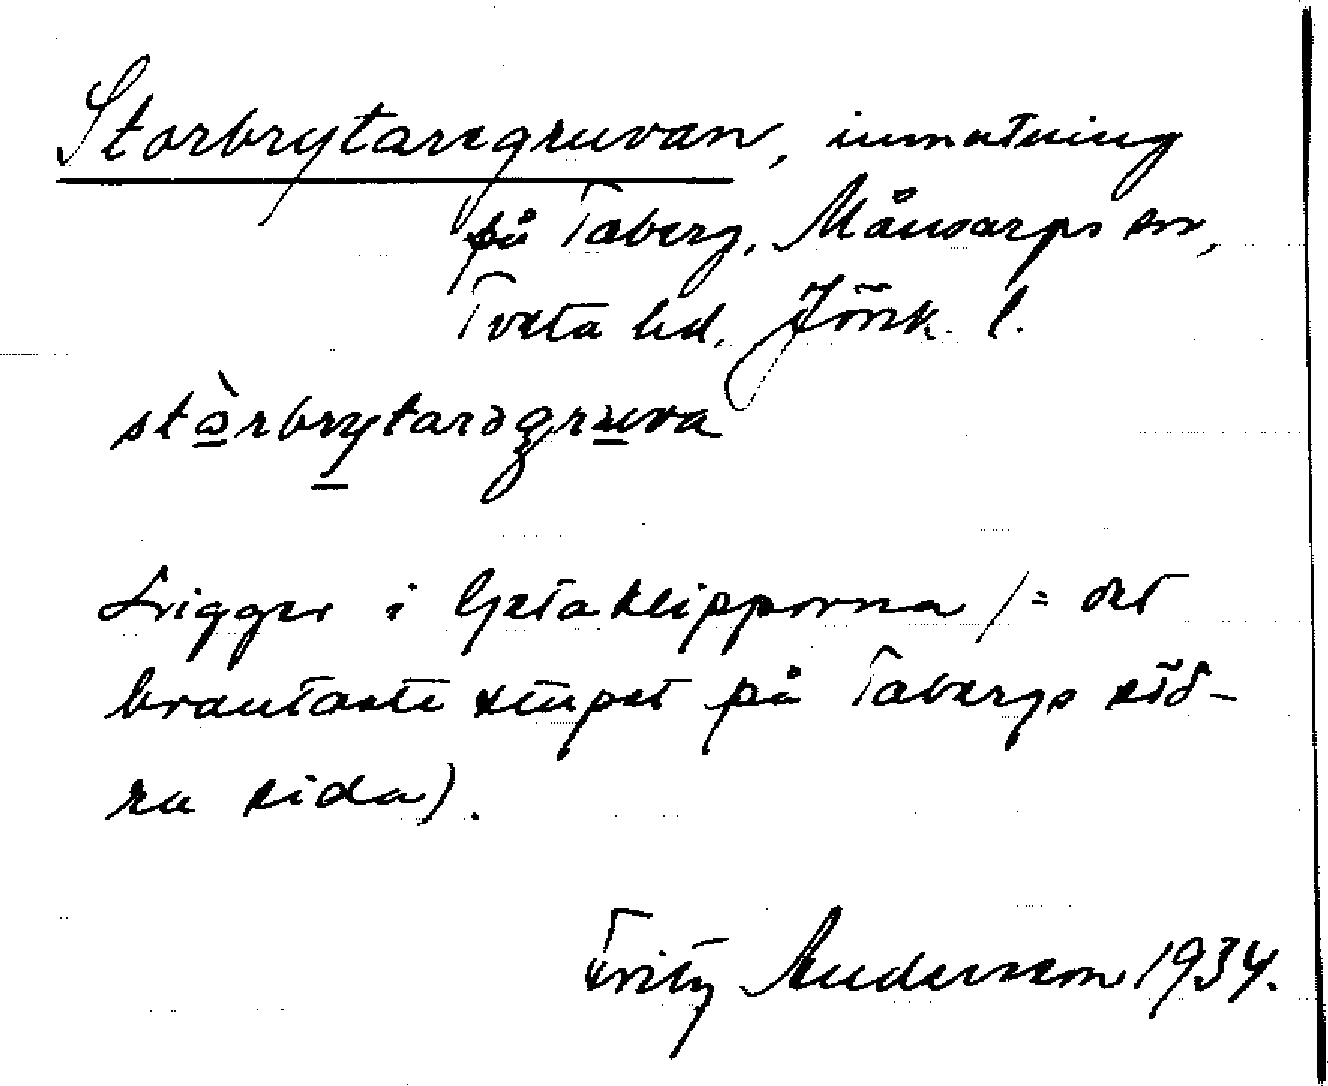 Storbrytaregruvan, inmutning
på Taberg, Månsarps sn,
Tveta hd, Jönk. l.
stòrbrytarəgruva
Ligger i Getaklipporna (= det
brantaste stupet på Tabergs söd-
ra sida).
Fritz Andersson 1934.